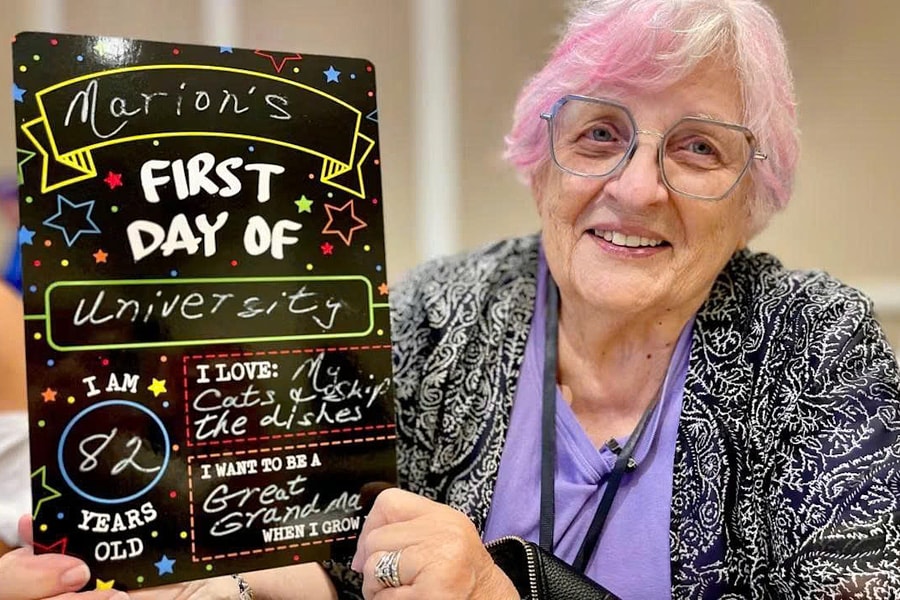 Marion's
FIRST
DAY OF
University
I AM
82
YEARS
OLD
I LOVE: My
Cats & Skip
the dishes
I WANT TO BE A
Great
Grandma
WHEN I GROW